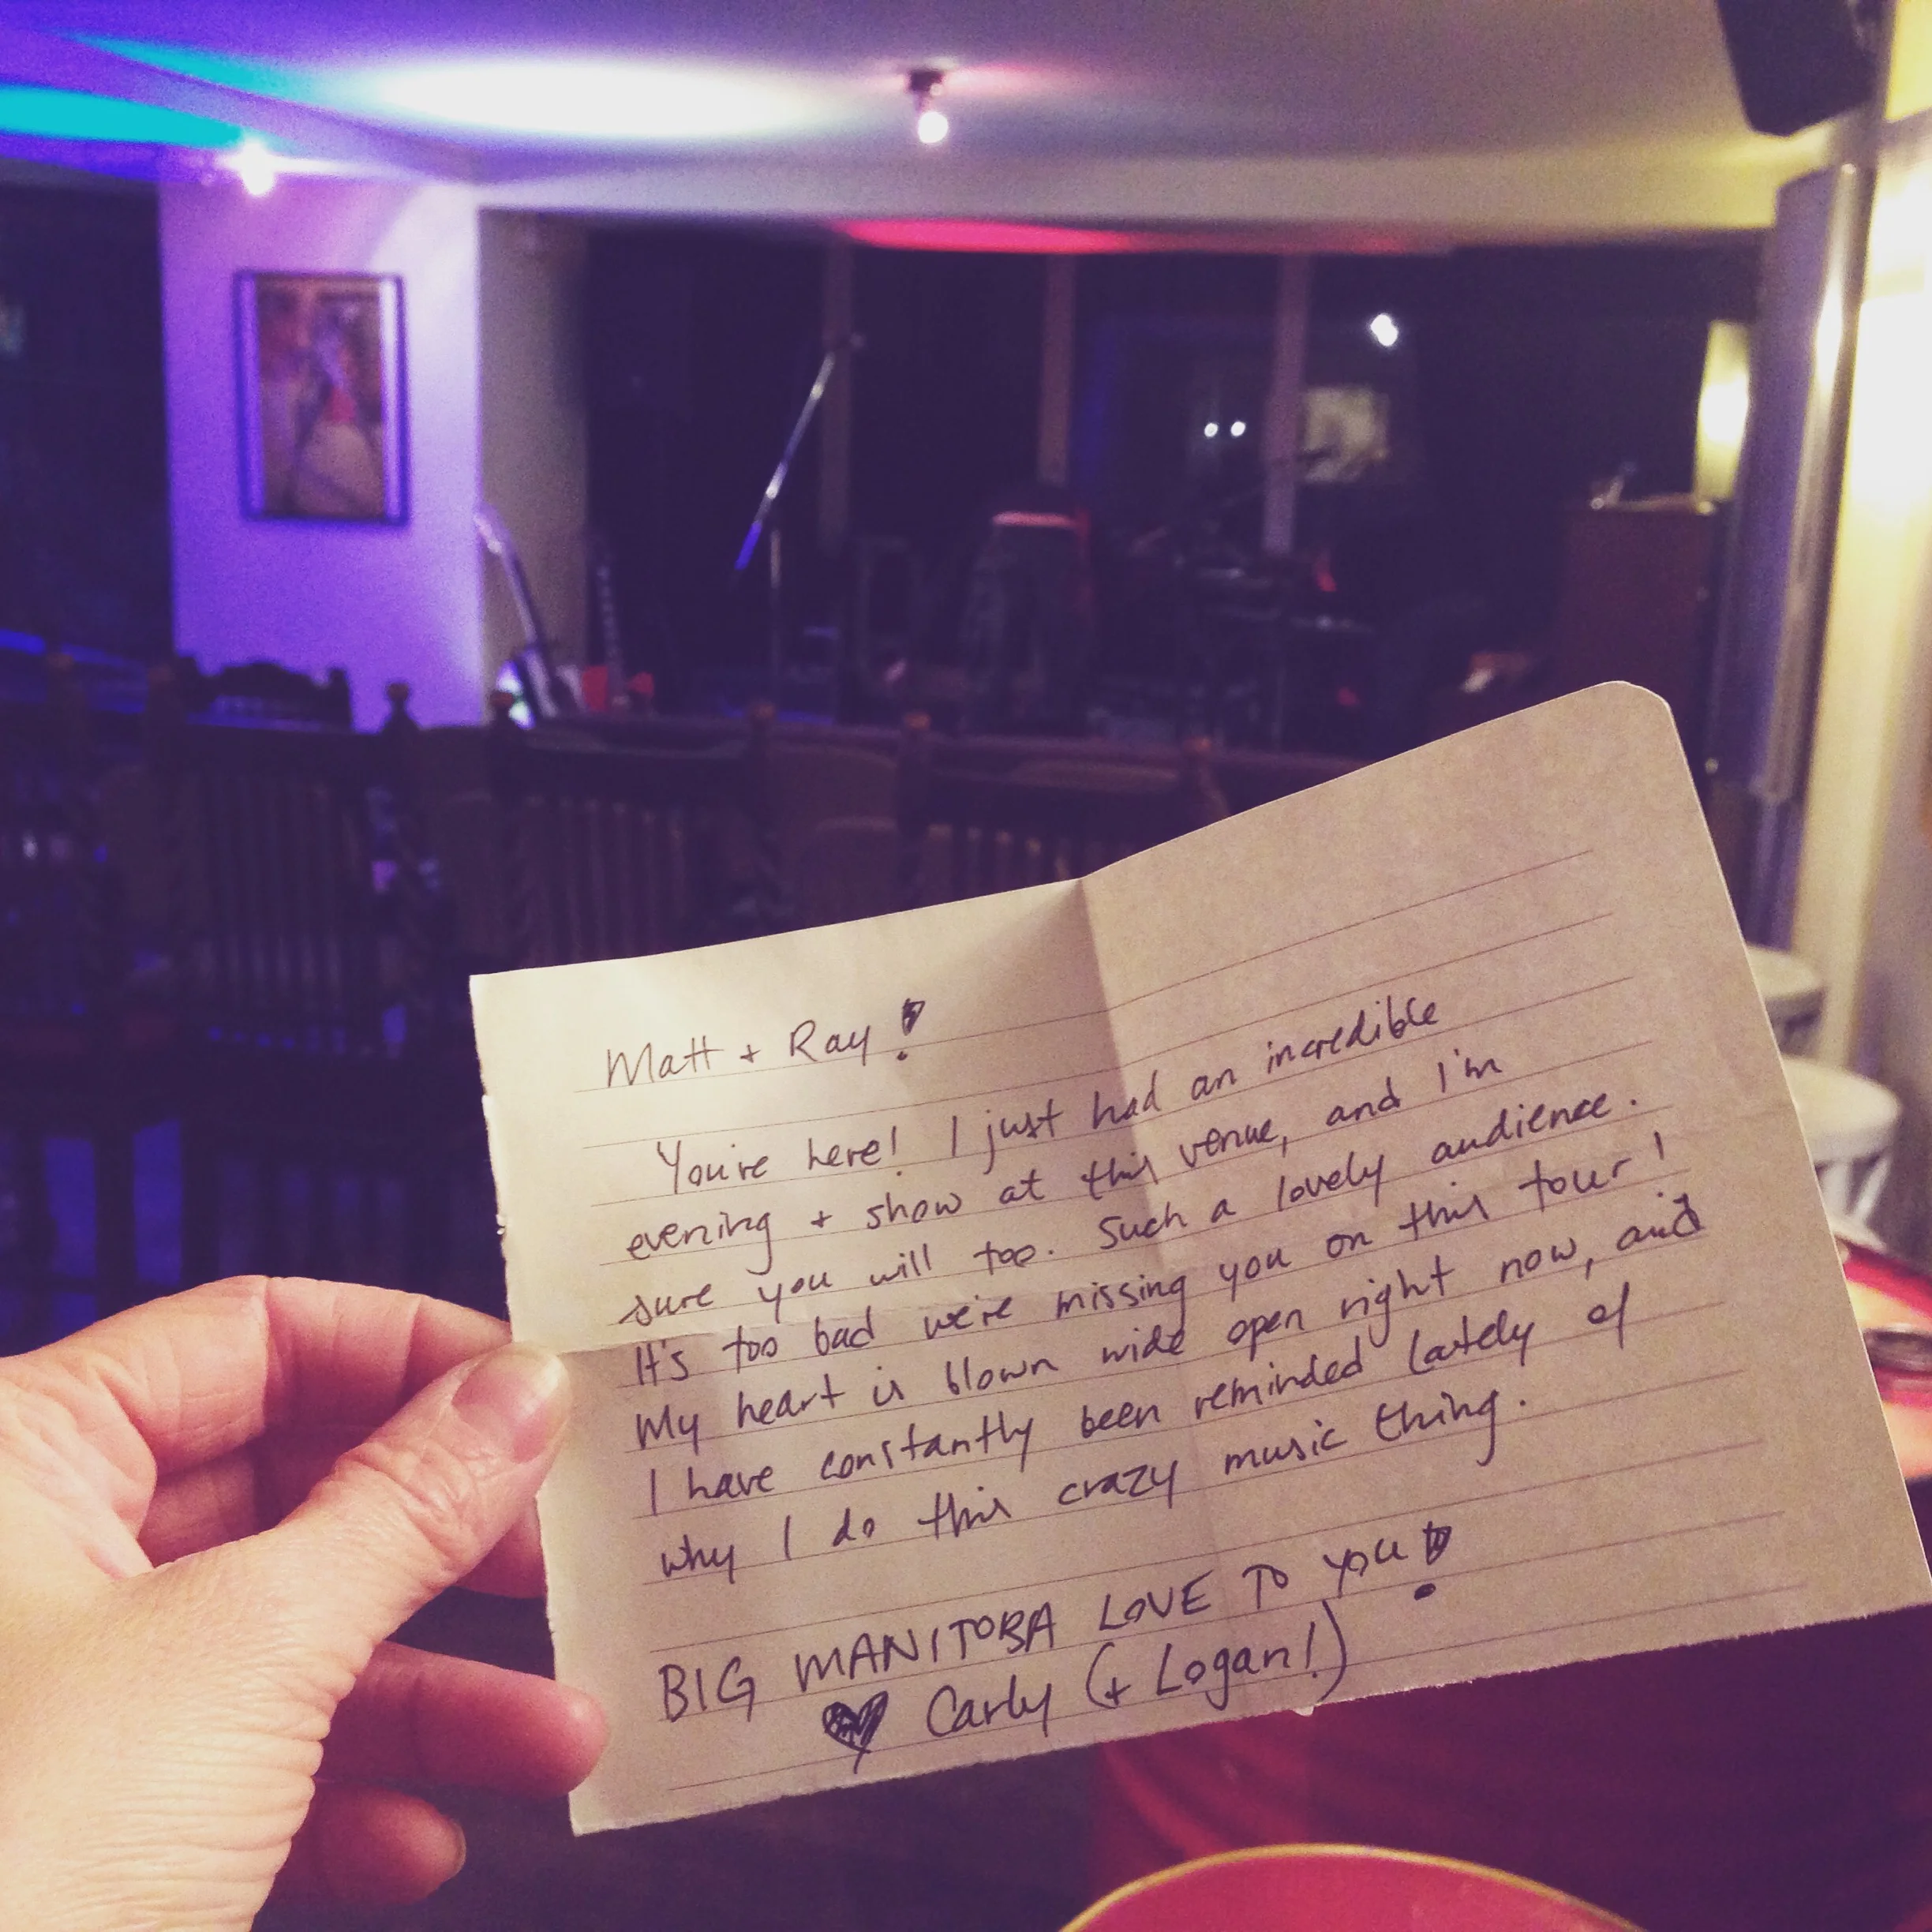 Matt + Ray!
You're here! I just had an incredible
evening + show at this venue, and I'm
sure you will too. Such a lovely audience.
It's too bad we're missing you on this tour!
My heart is blown wide open right now, and
I have constantly been reminded lately of
why I do this crazy music thing.
BIG MANITOBA LOVE TO YOU!
♥ Carly (+ Logan!)